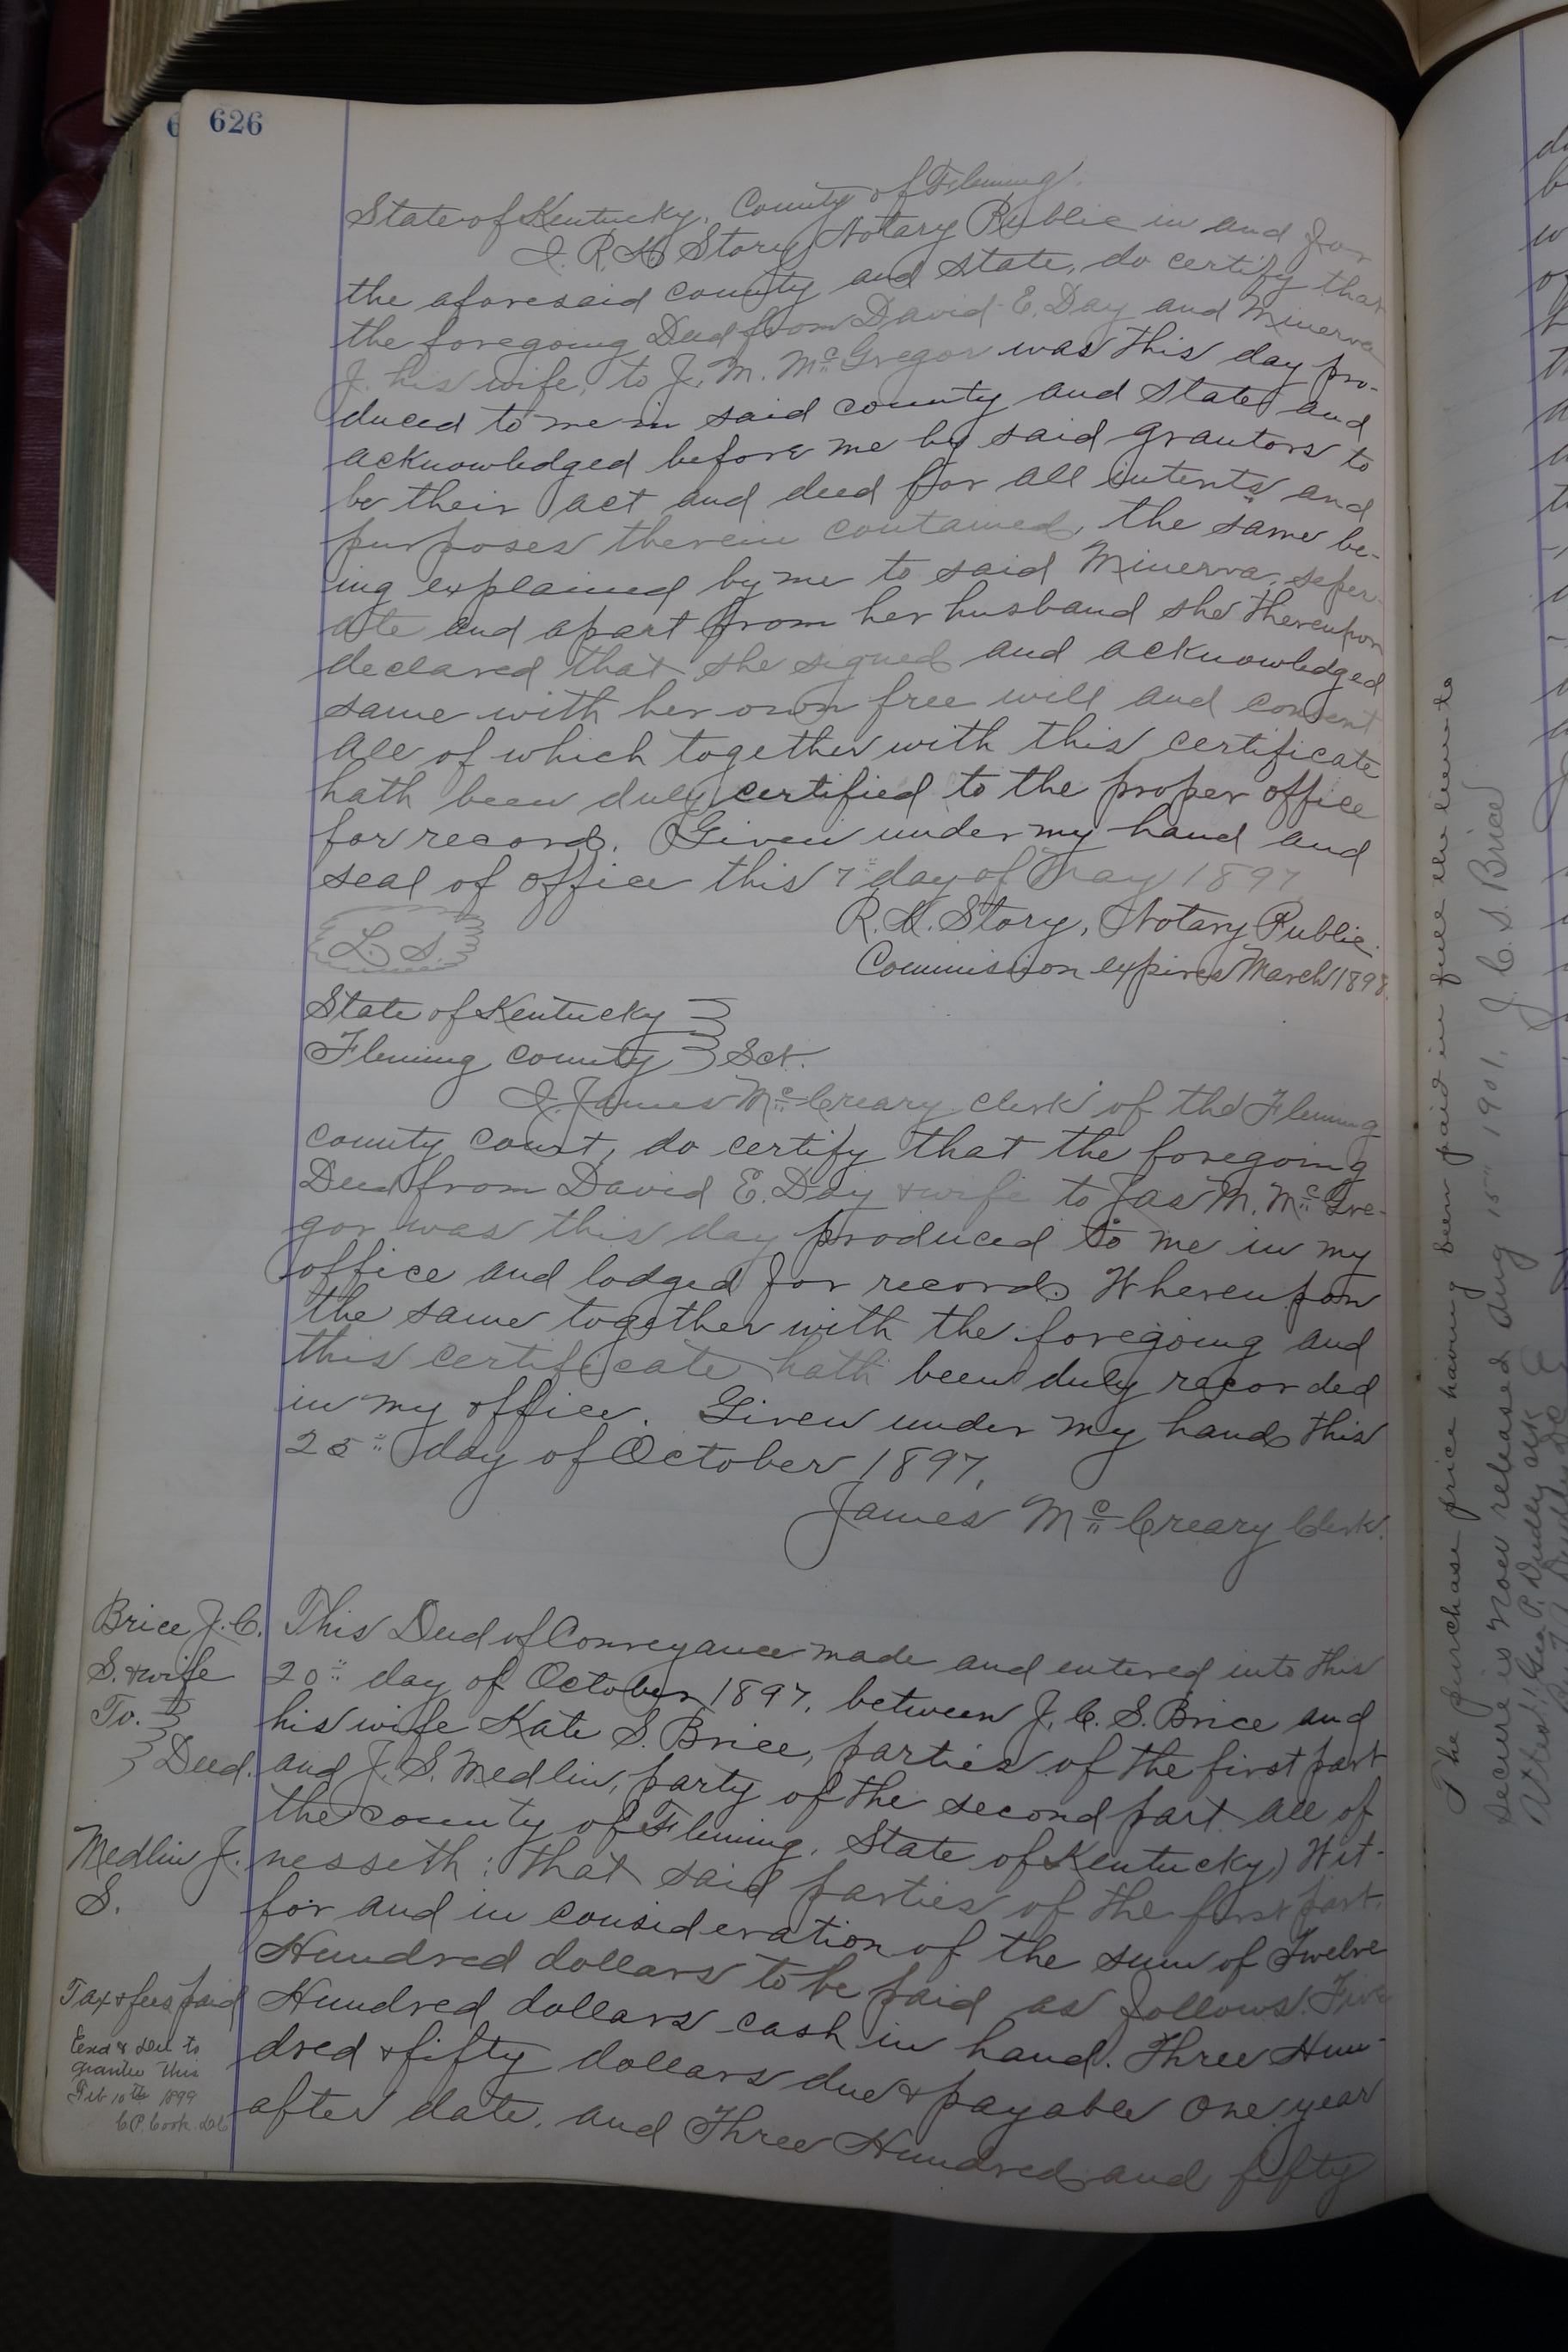 626
State of Kentucky, County of Fleming.
I. R. K. Story, Notary Public in and for
the aforesaid county and state, do certify that
the foregoing Deed from David E. Day and Minerva
J. his wife, to J. M. McGregor was this day pro-
duced to me in said county and State and
acknowledged before me by said grantors to
be their act and deed for all intents and
purposes therein contained, the same be-
ing explained by me to said Minerva, seper-
ate and apart from her husband she thereupon
declared that she signed and acknowledged
same with her own free will and consent
all of which together with this certificate
hath been duly certified to the proper office
for record. Given under my hand and
seal of office this 7" day of May 1897
R. K. Story, Notary Public.
L. S.
Commission expires March 1898.
State of Kentucky
Fleming county Sct.
I. James McCreary clerk of the Fleming
county court, do certify that the foregoing
Deed from David E. Day & wife to Jas M. McGre-
gor was this day produced to me in my
office and lodged for record. Whereupon
the same together with the foregoing and
this certificate hath been duly recorded
in my office. Given under my hand this
25" day of October 1897.
James McCreary Clerk.
Brice J. C.
S. & wife
To.
Deed.
Medlin J.
S.
Tax & fees paid
grantee this
Feb 10th 1899
C.P. Cook D.C.
This Deed of Conveyance made and entered into this
20" day of October 1897, between J. C. S. Brice and
his wife Kate S. Brice, parties of the first part
and J. S. Medlin, party of the second part all of
the county of Fleming, State of Kentucky) Wit-
nesseth: that said parties of the first part.
for and in consideration of the sum of Twelve
Hundred dollars to be paid as follows. Five
Hundred dollars cash in hand. Three Hun-
dred & fifty dollars due & payable one year
after date, and Three Hundred and fifty
The purchase price having been paid in full the lien to
secure is now released Aug 15" 1901, J. C. S. Brice
Attest: Geo P. Dudley clk